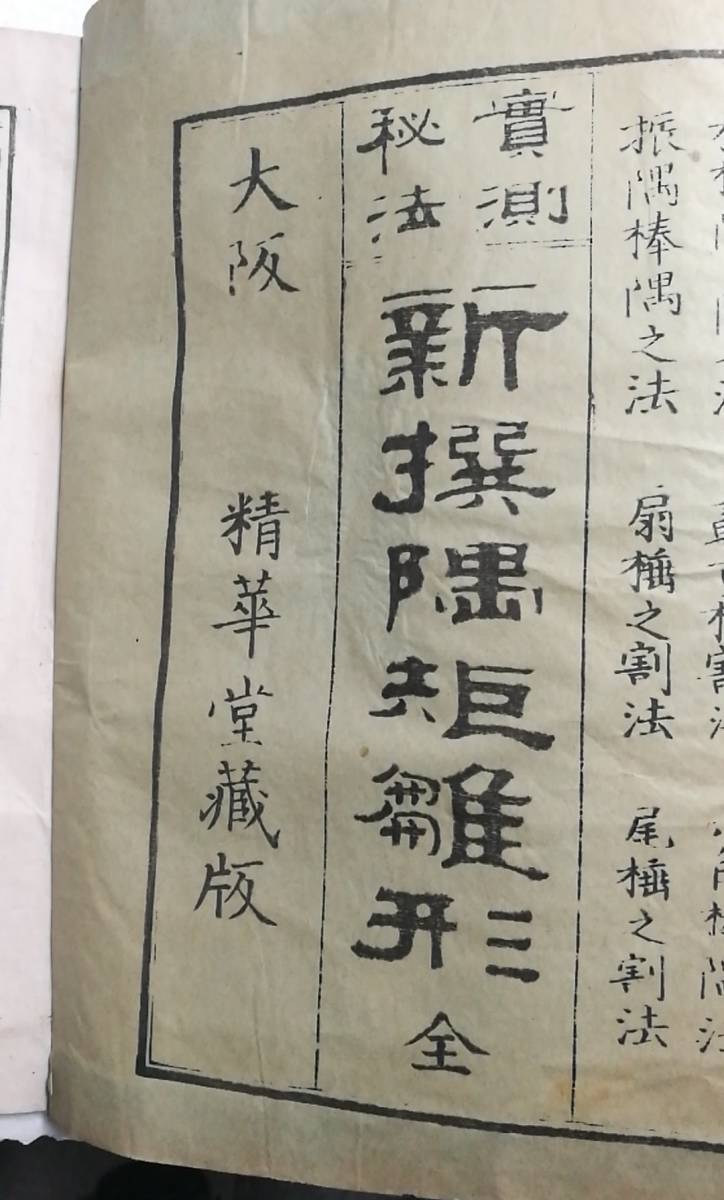 振隅棒隅之法 扇棰之割法 尾棰之割法
實測
秘法
新撰隅矩雛形 全
大阪 精華堂藏版